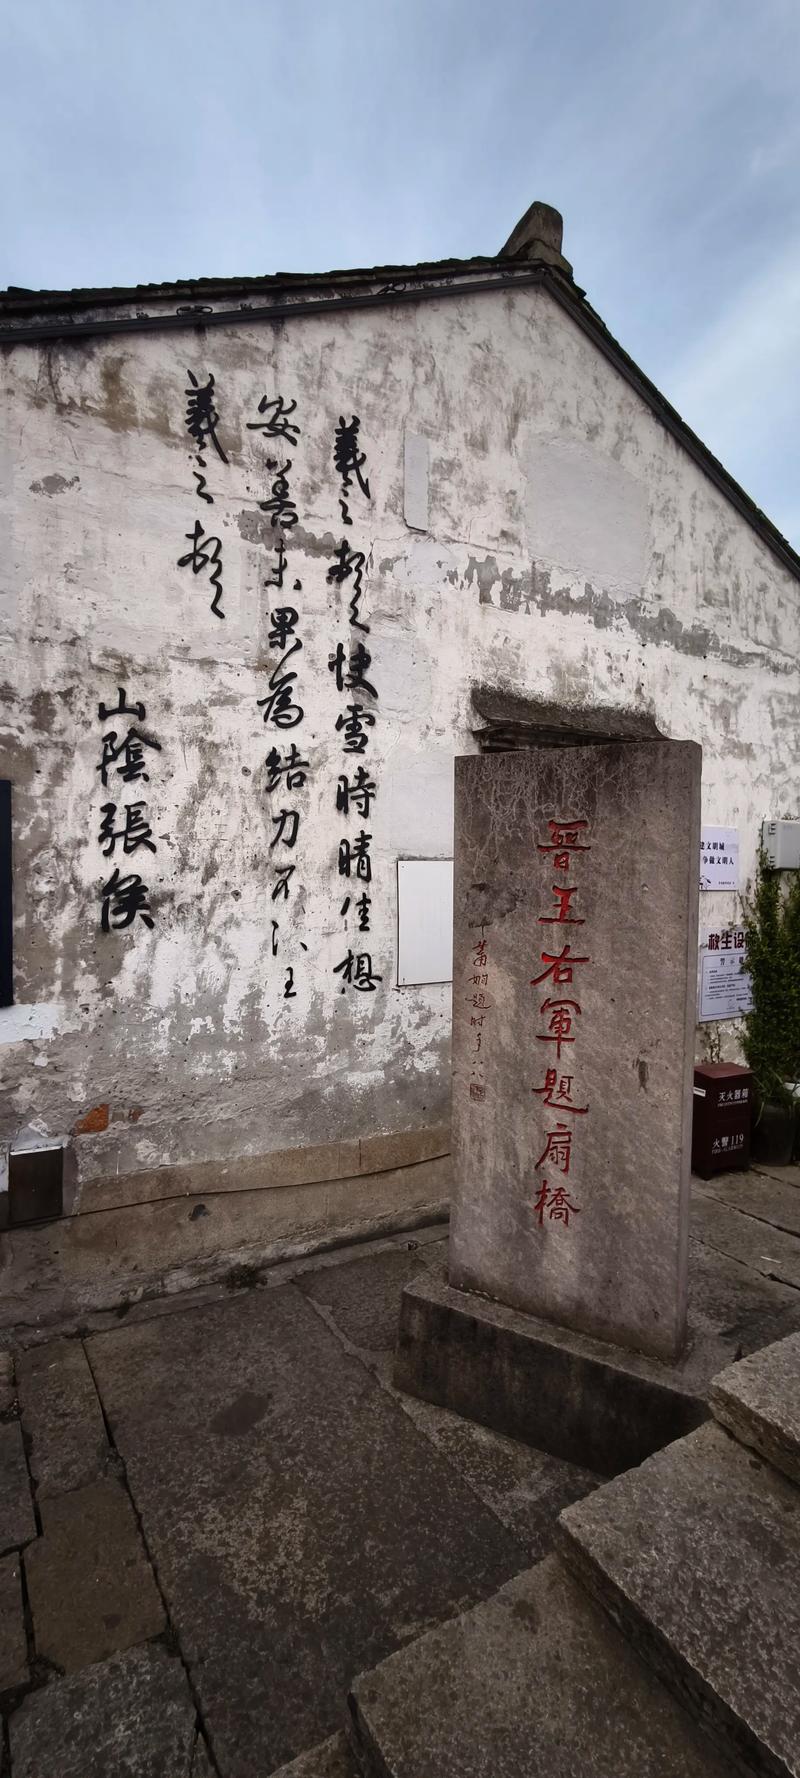 羲之頓首快雪時晴佳想
安善未果為結力不次王
羲之頓首
山陰張侯
晉王右軍題扇橋
建文明城
争做文明人
救生设
警示
灭火器箱
火警119